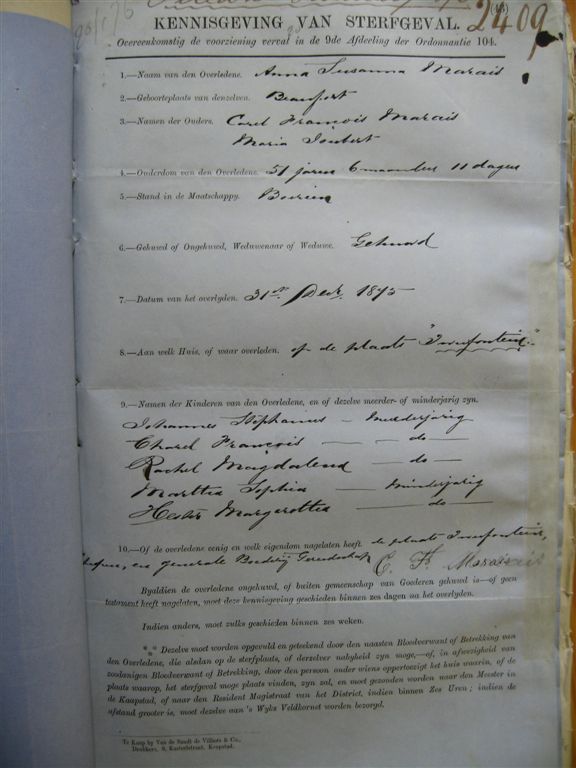 (46)
2409
KENNISGEVING VAN STERFGEVAL.
Overeenkomstig de voorziening vervat in de 9de Afdeeling der Ordonnantie 104.
1.—Naam van den Overledene. Anna Susanna Marais
2.—Geboorteplaats van denzelven. Beaufort
3.—Namen der Ouders. Carel François Marais
Maria Joubert
4.—Ouderdom van den Overledene. 51 jaren 6 maanden 11 dagen
5.—Stand in de Maatschappy. Boerin
6.—Gehuwd of Ongehuwd, Weduwenaar of Weduwe. Gehuwd
7.—Datum van het overlyden. 31st Decr. 1875
8.—Aan welk Huis, of waar overleden. op de plaats
9.—Namen der Kinderen van den Overledene, en of dezelve meerder- of minderjarig zyn.
Johannes Stephanus — Meerderjarig
Charel François — do —
Rachel Magdalena — do —
Martha Sophia — Minderjarig
Hester Margaretha — do —
10.—Of de overledene eenig en welk eigendom nagelaten heeft. de plaats
en generale Boerdery Gereedschap C. F. Marais
Byaldien de overledene ongehuwd, of buiten gemeenschap van Goederen gehuwd is—of geen
testament heeft nagelaten, moet deze kennisgeving geschieden binnen zes dagen na het overlyden.
Indien anders, moet zulks geschieden binnen zes weken.
*** Dezelve moet worden opgevuld en geteekend door den naasten Bloedverwant of Betrekking van
den Overledene, die alsdan op de sterfplaats, of derzelver nabyheid zyn moge,—of, in afwezigheid van
zoodanigen Bloedverwant of Betrekking, door den persoon onder wiens oppertoezigt het huis waarin, of de
plaats waarop, het sterfgeval moge plaats vinden, zyn zal, en moet gezonden worden naar den Meester in
de Kaapstad, of naar den Resident Magistraat van het District, indien binnen Zes Uren; indien de
afstand grooter is, moet dezelve aan 's Wyks Veldkornet worden bezorgd.
Te Koop by Van de Sandt de Villiers & Co.,
Drukkers, 9, Kasteelstraat, Kaapstad.